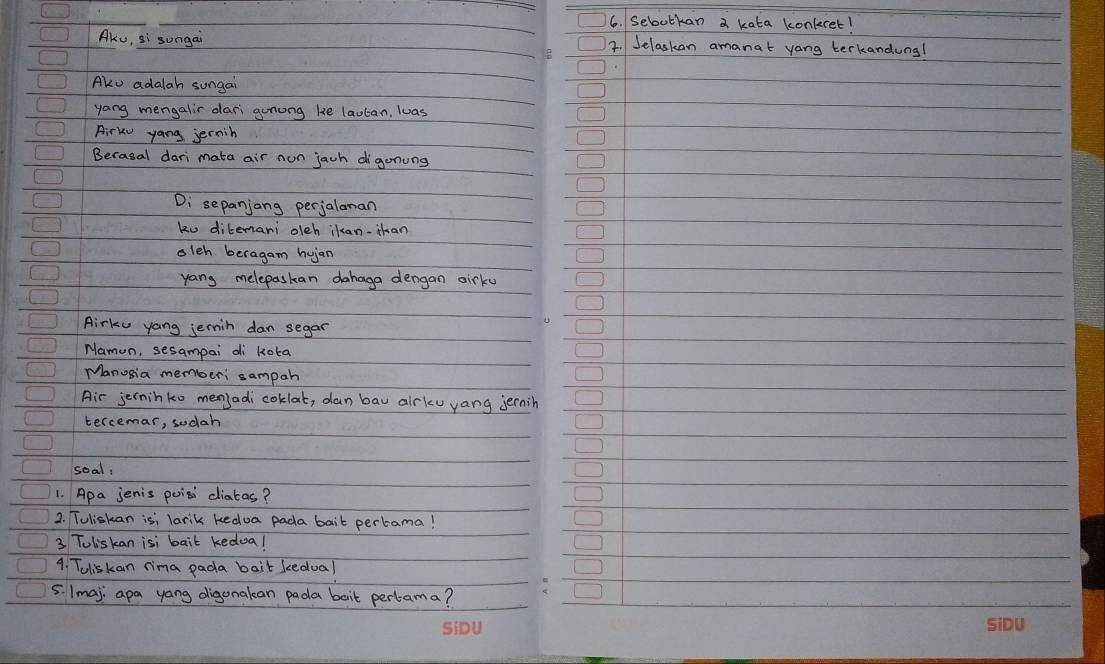 Aku, si sungai
Aku adalah sungai
yang mengalir dari gunung ke lautan, luas
Airku yang jernih
Berasal dari mata air nun jauh digunung
Di sepanjang perjalanan
ku ditemani oleh ikan-ikan
oleh beragam hujan
yang melepaskan dahaga dengan airku
Airku yang jernih dan segar
Namun, sesampai di kota
Manusia memberi sampah
Air jernihku menjadi coklat, dan bau airku yang jernih
tercemar, sudah
soal:
1. Apa jenis puisi diatas?
2. Tuliskan isi larik kedua pada bait pertama!
3 Tuliskan isi bait kedua!
4. Tuliskan rima pada bait kedua!
5. Imaji apa yang digunakan pada bait pertama?
SiDU
6. Sebutkan 2 kata konkret!
7. Jelaskan amanat yang terkandung!
SiDU